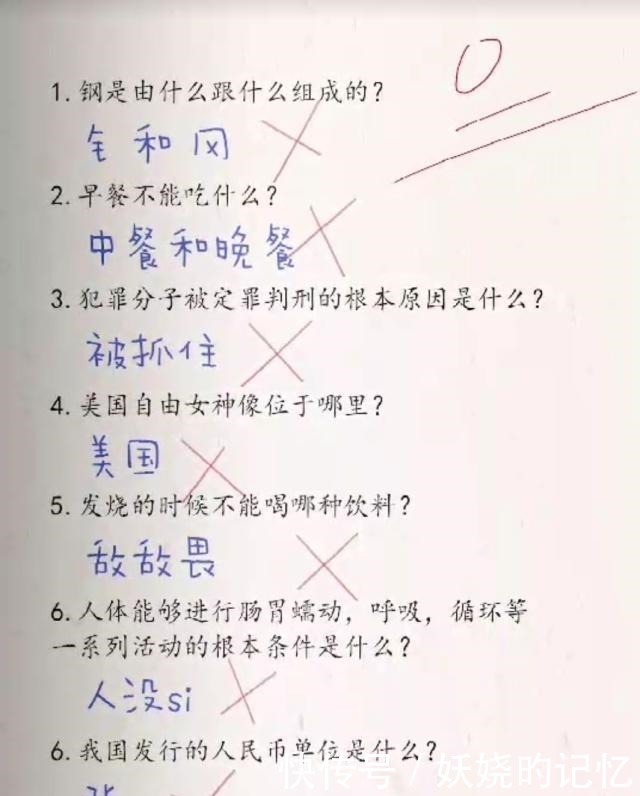 0
1. 钢是由什么跟什么组成的?
钅和冈
2. 早餐不能吃什么?
中餐和晚餐
3. 犯罪分子被定罪判刑的根本原因是什么?
被抓住
4. 美国自由女神像位于哪里?
美国
5. 发烧的时候不能喝哪种饮料?
敌敌畏
6. 人体能够进行肠胃蠕动, 呼吸, 循环等
一系列活动的根本条件是什么?
人没si
6. 我国发行的人民币单位是什么?
张
快传号 / 妖娆的记忆